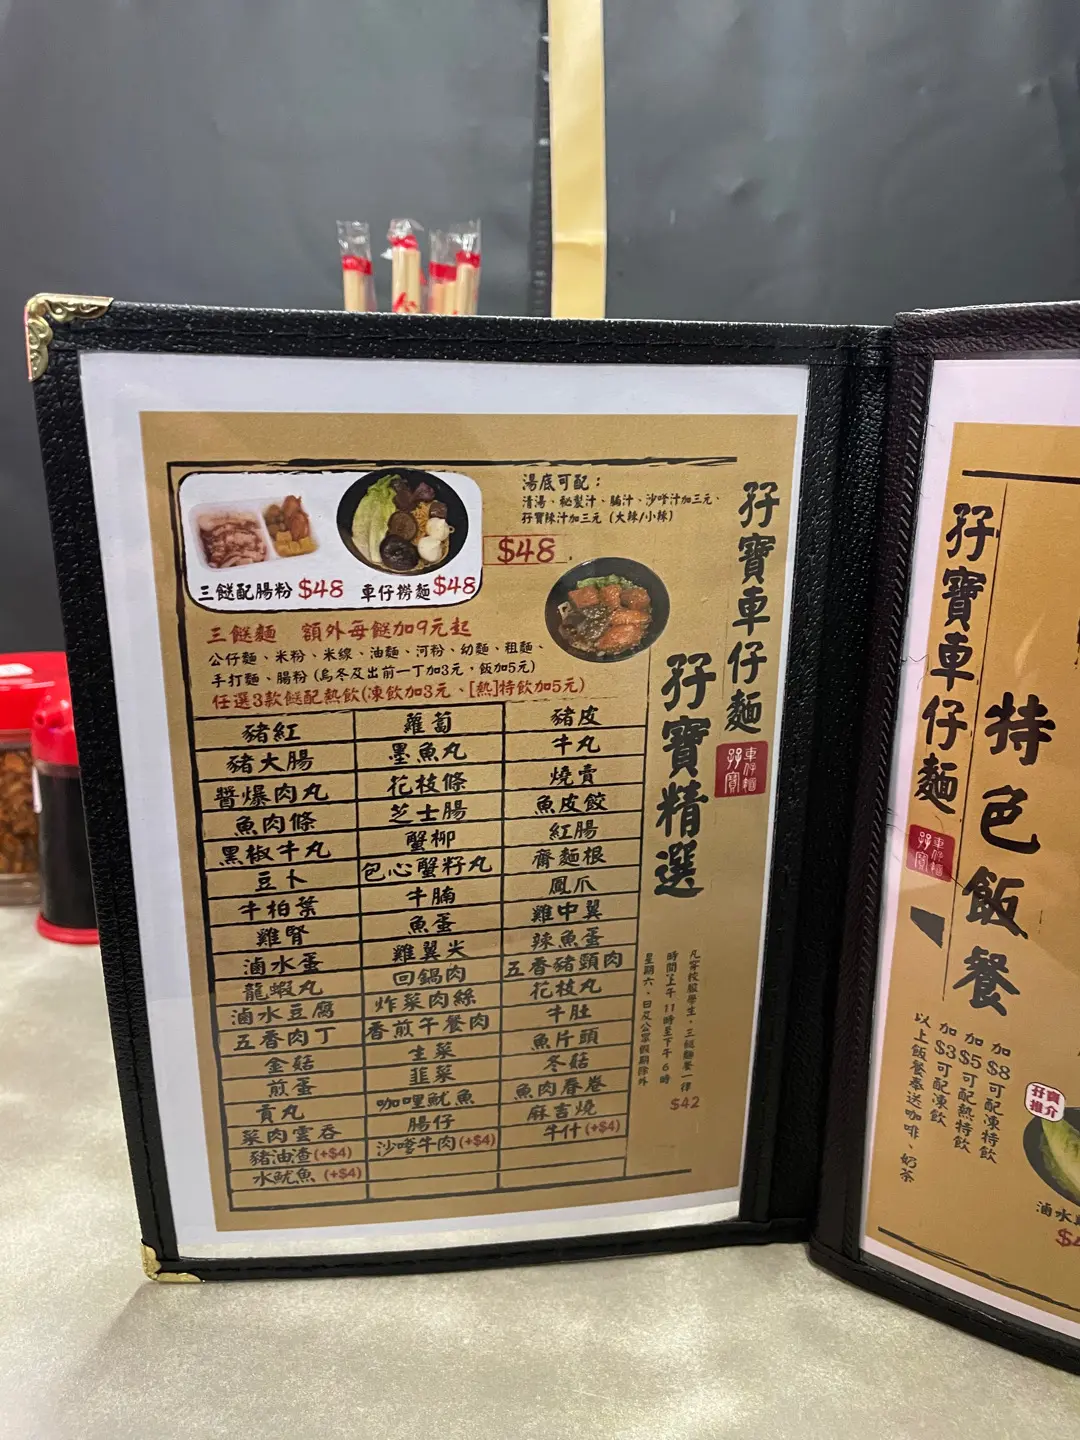 孖寶車仔麵
孖寶 車仔麵
孖寶精選
湯底可配：
清湯、秘製汁、腩汁、沙嗲汁加三元、
孖寶辣汁加三元（大辣/小辣）
$48
三餸配腸粉 $48
車仔撈麵 $48
三餸麵　額外每餸加9元起
公仔麵、米粉、米線、油麵、河粉、幼麵、粗麵、
手打麵、腸粉（烏冬及出前一丁加3元，飯加5元）
任選3款餸配熱飲(凍飲加3元、[熱]特飲加5元)
豬紅 蘿蔔 豬皮
豬大腸 墨魚丸 牛丸
醬爆肉丸 花枝條 燒賣
魚肉條 芝士腸 魚皮餃
黑椒牛丸 蟹柳 紅腸
豆卜 包心蟹籽丸 齋麵根
牛柏葉 牛腩 鳳爪
雞腎 魚蛋 雞中翼
滷水蛋 雞翼尖 辣魚蛋
龍蝦丸 回鍋肉 五香豬頸肉
滷水豆腐 炸菜肉絲 花枝丸
五香肉丁 香煎午餐肉 牛肚
金菇 生菜 魚片頭
煎蛋 韮菜 冬菇
貢丸 咖哩魷魚 魚肉春卷
菜肉雲吞 腸仔 麻吉燒
豬油渣(+$4) 沙嗲牛肉(+$4) 牛什(+$4)
水魷魚(+$4)
凡穿校服學生，三餸麵餐一律
$42
時間上午11時至下午6時
星期六、日及公眾假期除外
孖寶車仔麵
孖寶 車仔麵
特色飯餐
加$8可配凍特飲
加$5可配熱特飲
加$3可配凍飲
以上飯餐奉送咖啡、奶茶
孖寶
推介
滷水